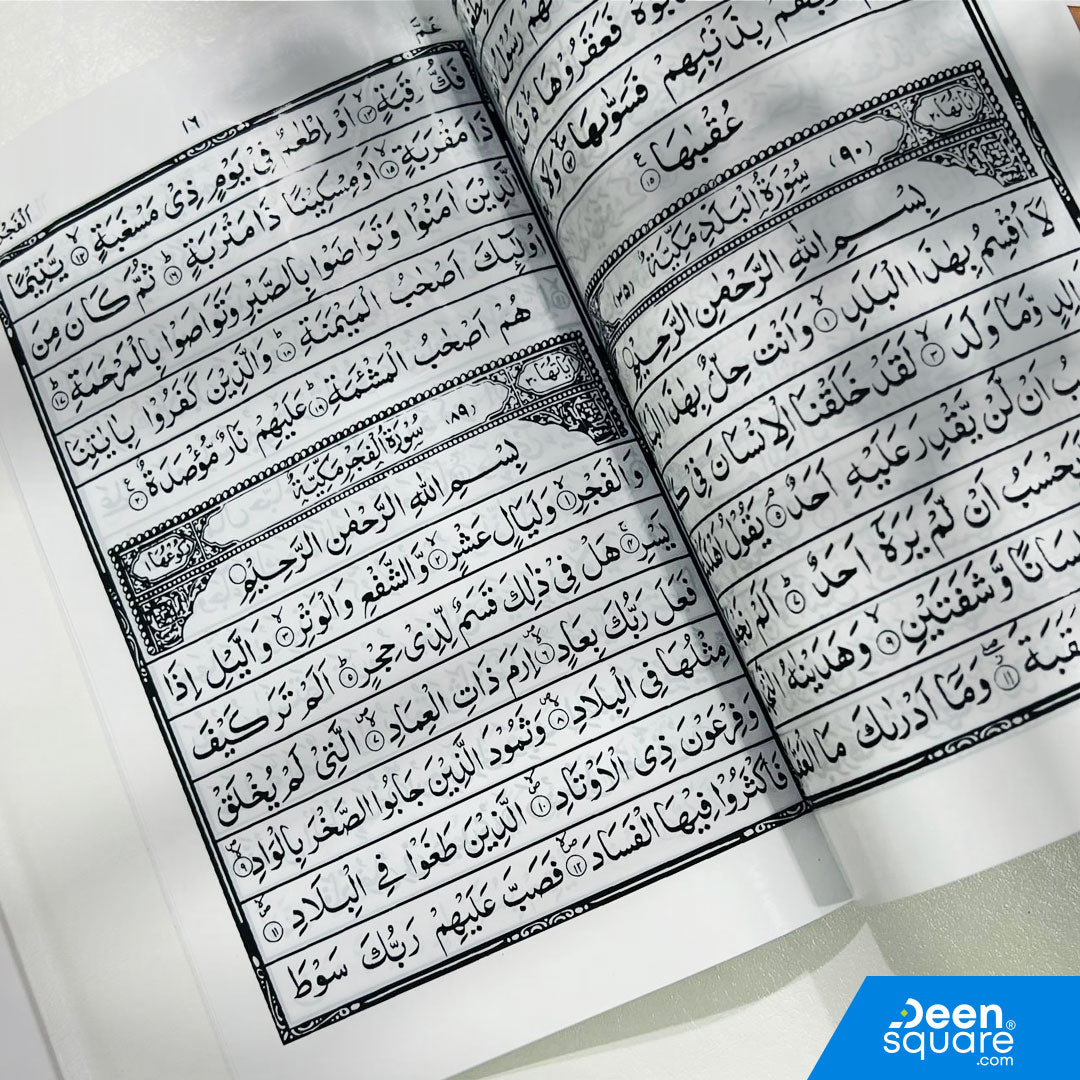 رَسُوْلُ
فَعَقَرُوْهَا
بِذَنْۢبِهِمْ فَسَوّٰىهَا ۝١٤ وَلَا
عُقْبٰهَا ۝١٥
اٰيَاتُهَا ٢٠ (٩٠) سُوْرَةُ الْبَلَدِ مَكِّيَّةٌ (٣٥)
بِسْمِ اللّٰهِ الرَّحْمٰنِ الرَّحِيْمِ
لَاۤ اُقْسِمُ بِهٰذَا الْبَلَدِ ۝١ وَاَنْتَ حِلٌّۢ بِهٰذَا
وَّمَا وَلَدَ ۝٣ لَقَدْ خَلَقْنَا الْاِنْسَانَ فِيْ
اَنْ لَّنْ يَّقْدِرَ عَلَيْهِ اَحَدٌ ۝٥ يَقُوْلُ
اَنْ لَّمْ يَرَهٗۤ اَحَدٌ ۝٧ اَلَمْ
وَّشَفَتَيْنِ ۝٩ وَهَدَيْنٰهُ
۝١١ وَمَاۤ اَدْرٰىكَ مَا
عَمَّ
١٦
فَكُّ رَقَبَةٍ ۝١٣ اَوْ اِطْعٰمٌ فِيْ يَوْمٍ ذِيْ مَسْغَبَةٍ ۝١٤ يَّتِيْمًا
ذَا مَقْرَبَةٍ ۝١٥ اَوْ مِسْكِيْنًا ذَا مَتْرَبَةٍ ۝١٦ ثُمَّ كَانَ مِنَ
الَّذِيْنَ اٰمَنُوْا وَتَوَاصَوْا بِالصَّبْرِ وَتَوَاصَوْا بِالْمَرْحَمَةِ ۝١٧
اُولٰٓئِكَ اَصْحٰبُ الْمَيْمَنَةِ ۝١٨ وَالَّذِيْنَ كَفَرُوْا بِاٰيٰتِنَا
هُمْ اَصْحٰبُ الْمَشْئَمَةِ ۝١٩ عَلَيْهِمْ نَارٌ مُّؤْصَدَةٌ ۝٢٠
اٰيَاتُهَا ٣٠ (٨٩) سُوْرَةُ الْفَجْرِ مَكِّيَّةٌ رُكُوْعُهَا ١
بِسْمِ اللّٰهِ الرَّحْمٰنِ الرَّحِيْمِ
وَالْفَجْرِ ۝١ وَلَيَالٍ عَشْرٍ ۝٢ وَّالشَّفْعِ وَالْوَتْرِ ۝٣ وَالَّيْلِ اِذَا
يَسْرِ ۝٤ هَلْ فِيْ ذٰلِكَ قَسَمٌ لِّذِيْ حِجْرٍ ۝٥ اَلَمْ تَرَ كَيْفَ
فَعَلَ رَبُّكَ بِعَادٍ ۝٦ اِرَمَ ذَاتِ الْعِمَادِ ۝٧ الَّتِيْ لَمْ يُخْلَقْ
مِثْلُهَا فِي الْبِلَادِ ۝٨ وَثَمُوْدَ الَّذِيْنَ جَابُوا الصَّخْرَ بِالْوَادِ ۝٩
وَفِرْعَوْنَ ذِي الْاَوْتَادِ ۝١٠ الَّذِيْنَ طَغَوْا فِي الْبِلَادِ ۝١١
فَاَكْثَرُوْا فِيْهَا الْفَسَادَ ۝١٢ فَصَبَّ عَلَيْهِمْ رَبُّكَ سَوْطَ
Deen
square®
.com